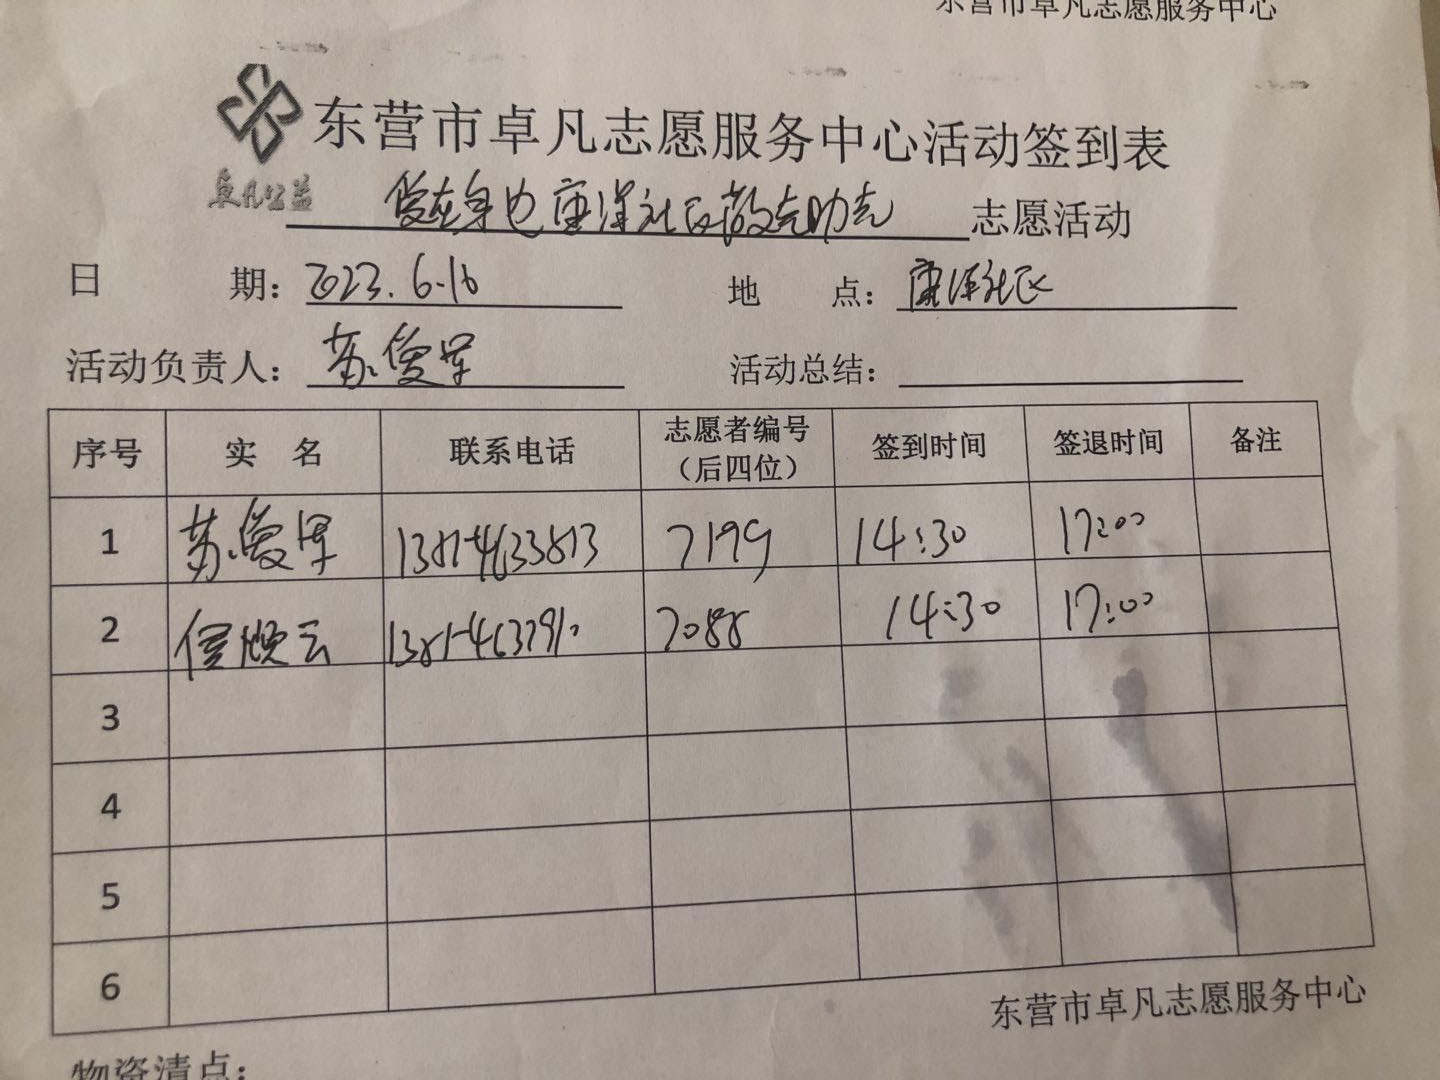 东营市卓凡志愿服务中心
东营市卓凡志愿服务中心活动签到表
卓凡公益
爱在身边康泽社区敬老助老 志愿活动
日 期：2023.6.16 地 点：康泽社区
活动负责人：苏爱军 活动总结：
序号 实 名 联系电话 志愿者编号（后四位） 签到时间 签退时间 备注
1 苏爱军 7199 14:30 17:00
2 7088 14:30 17:00
3
4
5
6
东营市卓凡志愿服务中心
物资清点：